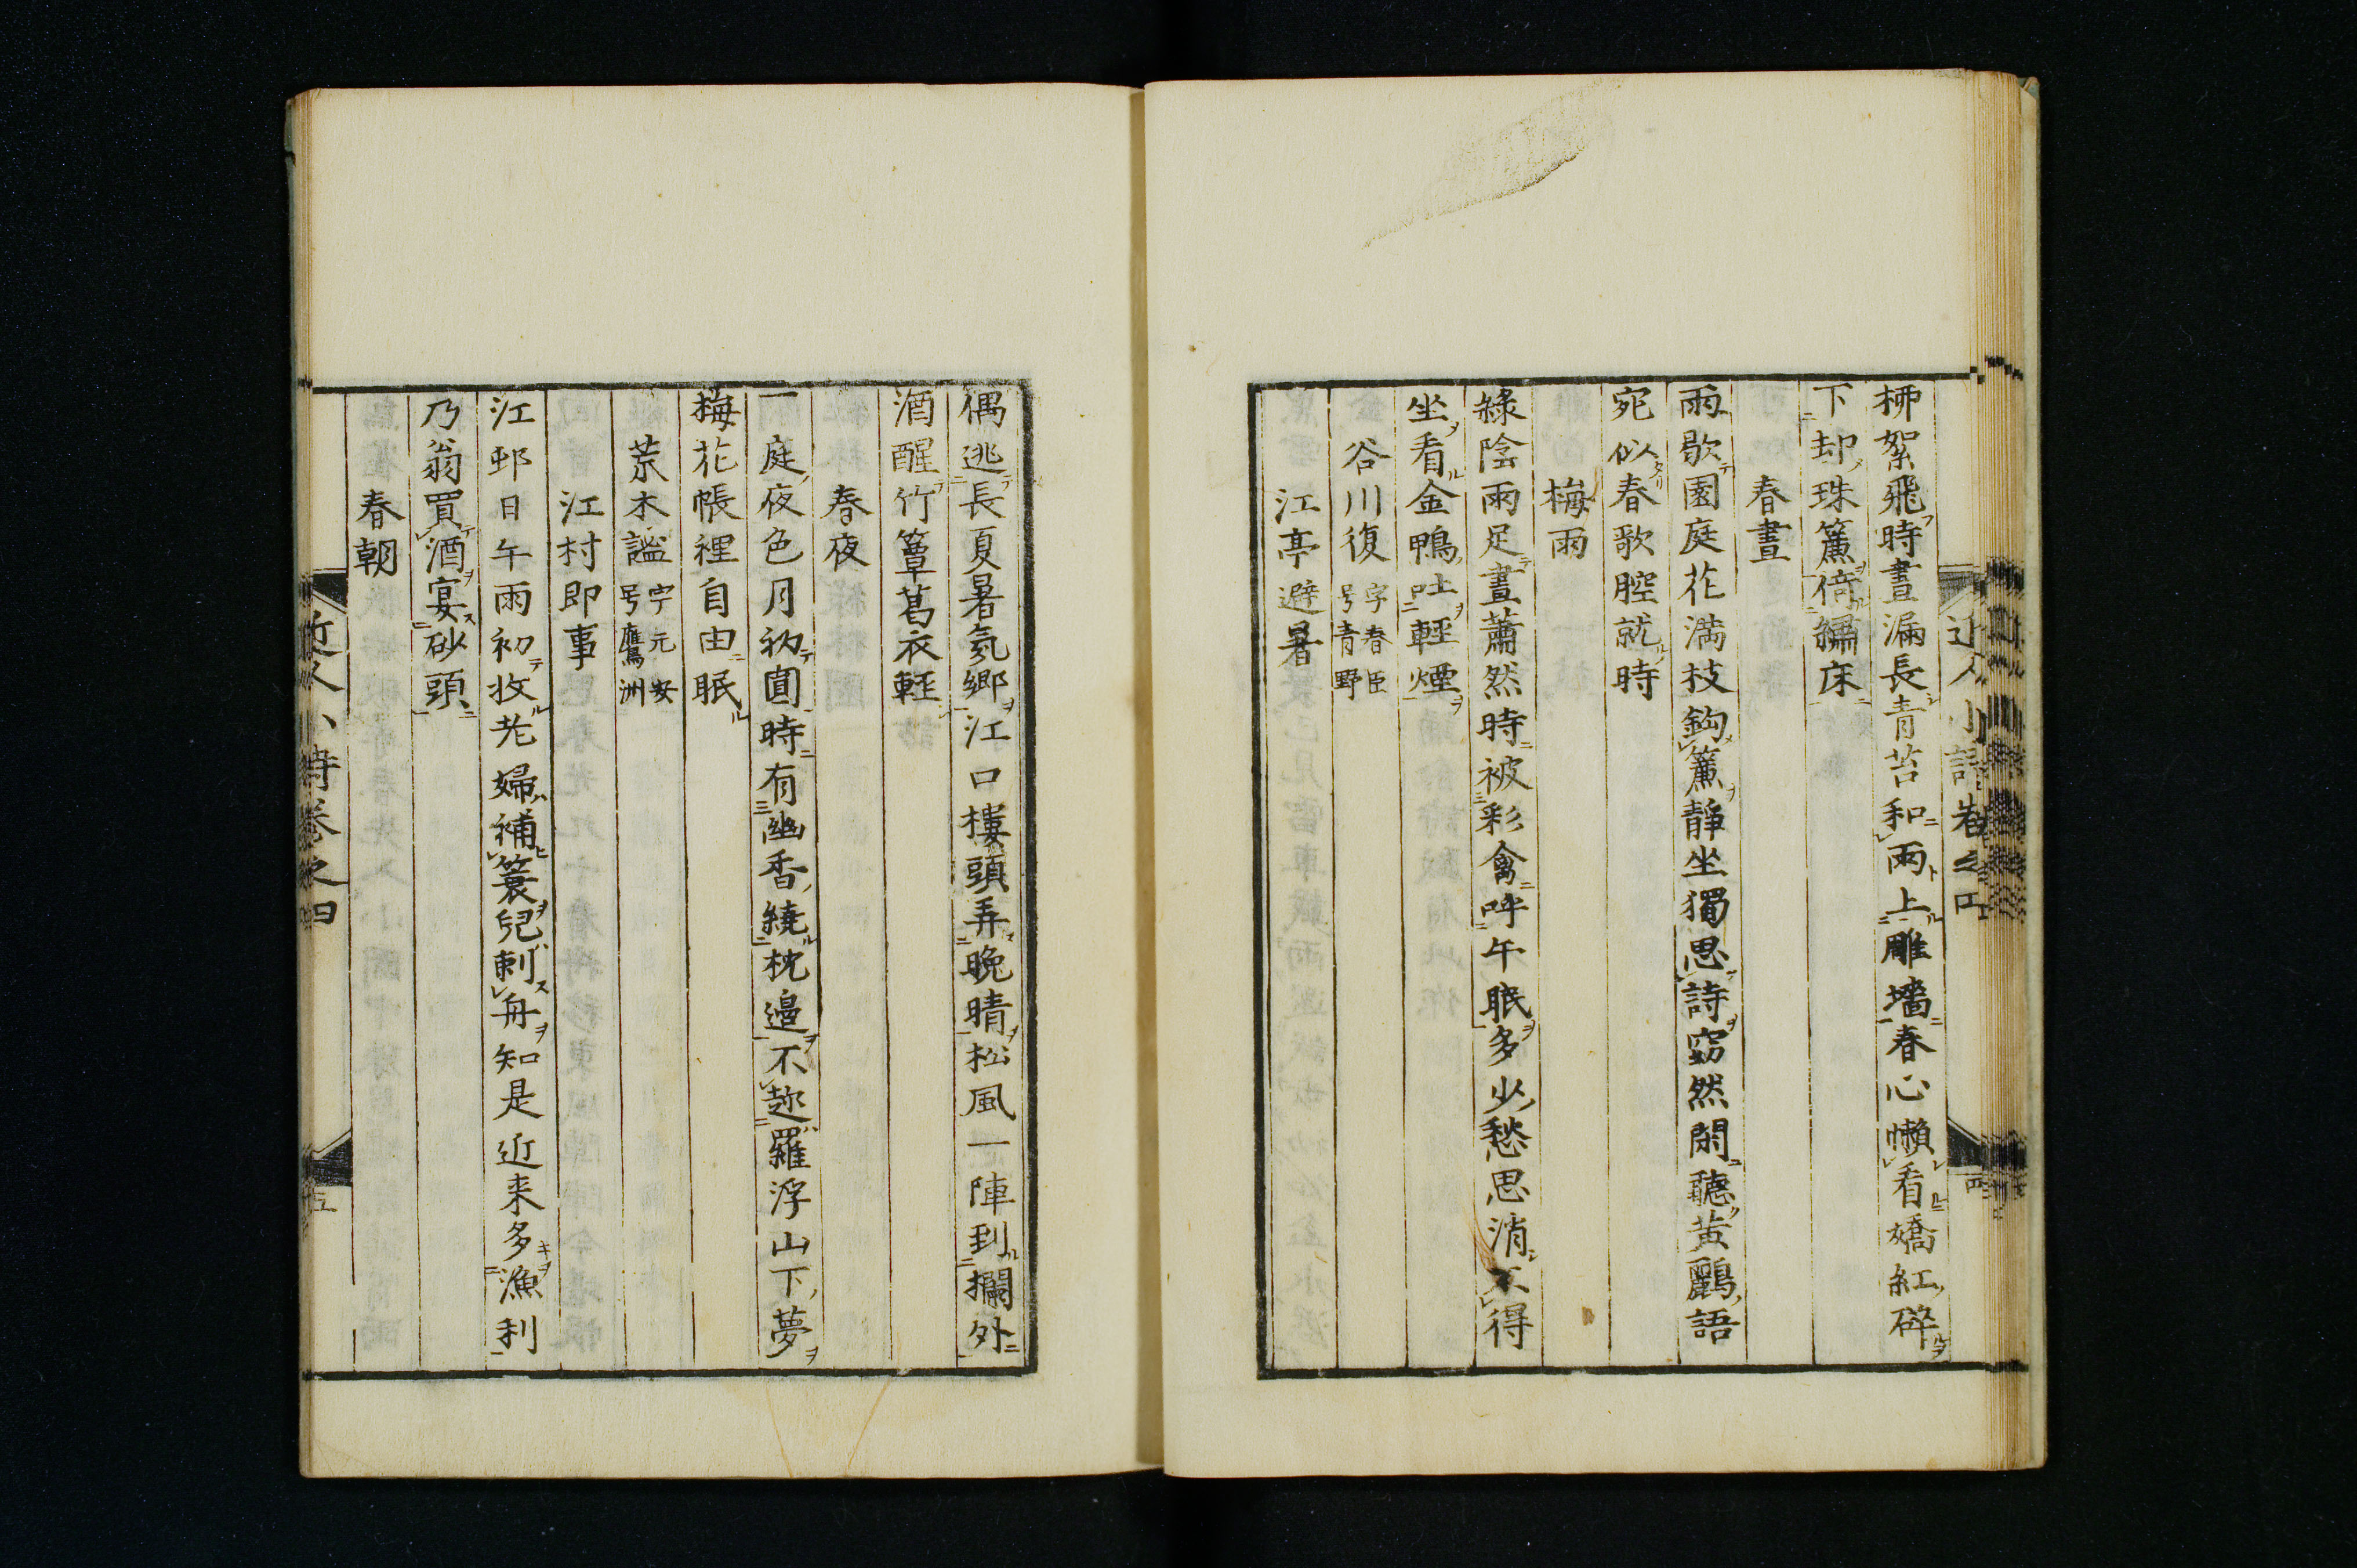 柳絮飛時晝漏長青苔和雨上雕墻春心懶看嬌紅碎
下却珠簾倚繡床
春晝
雨歇園庭花満枝鈎簾靜坐獨思詩窈然閑聽黄鸝語
宛似春歌腔就時
梅雨
綠陰雨足晝蕭然時被彩禽呼午眠多少愁思消不得
坐看金鴨吐輕煙
谷川復 字春臣 号青野
江亭避暑
偶逃長夏暑氣鄉江口樓頭弄晚晴松風一陣到欄外
酒醒竹簟葛衣輕
春夜
一庭夜色月初圓時有幽香繞枕邊不趂羅浮山下夢
梅花帳裡自由眠
荒木謐 字元安 号鷹洲
江村即事
江邨日午雨初收老婦補簑兒刺舟知是近来多漁利
乃翁買酒宴砂頭
春朝
近人小詩卷之四
五